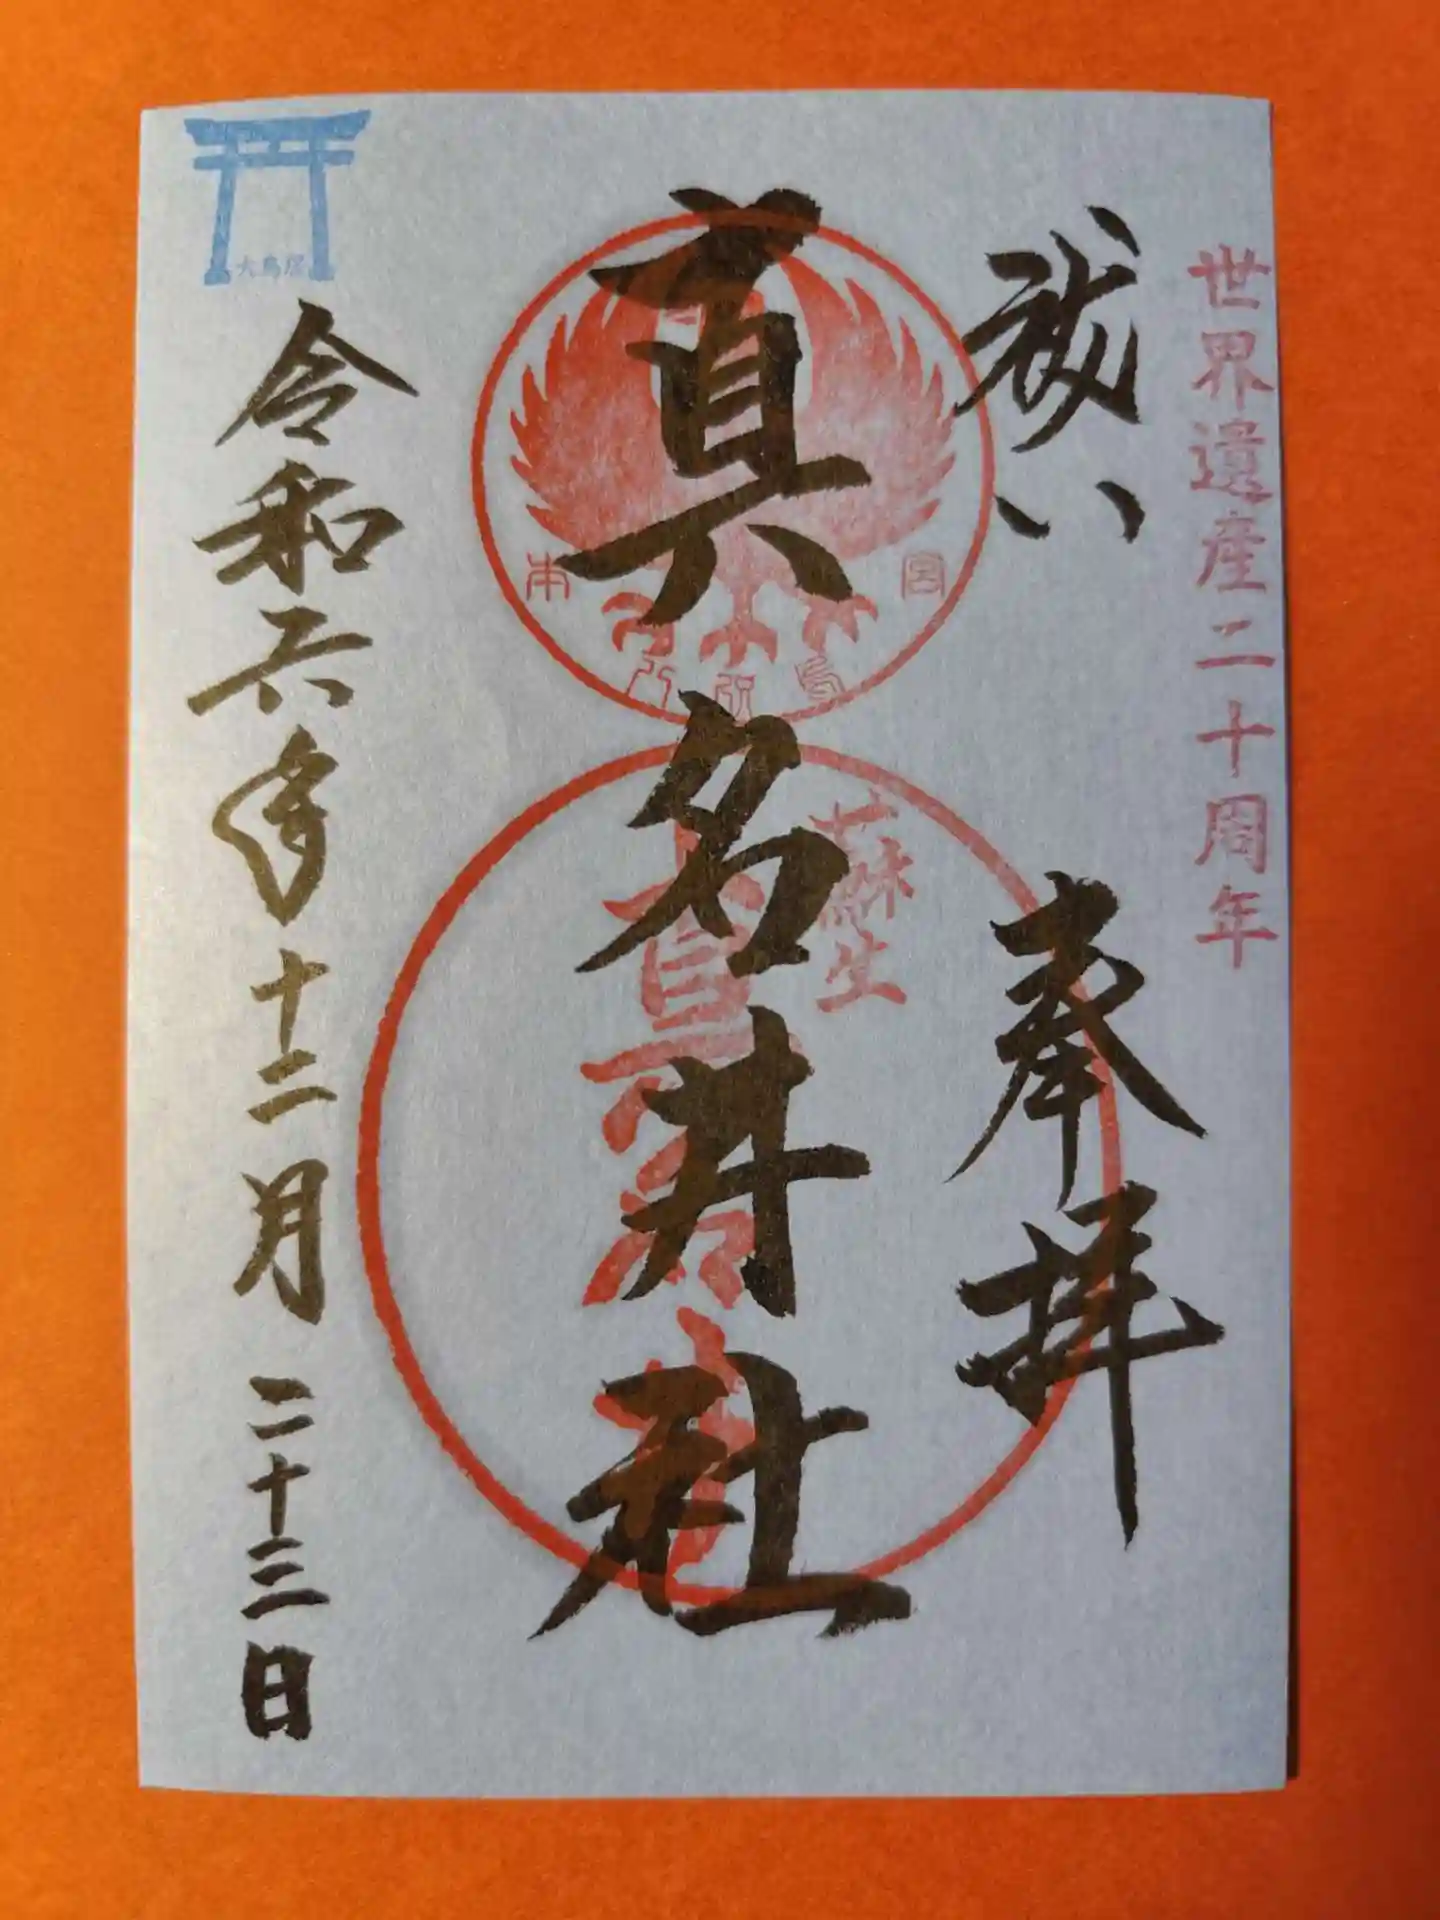 世界遺産二十周年
祓い
奉拝
蘇生
真名井社
本
宮
令和六年十二月二十三日